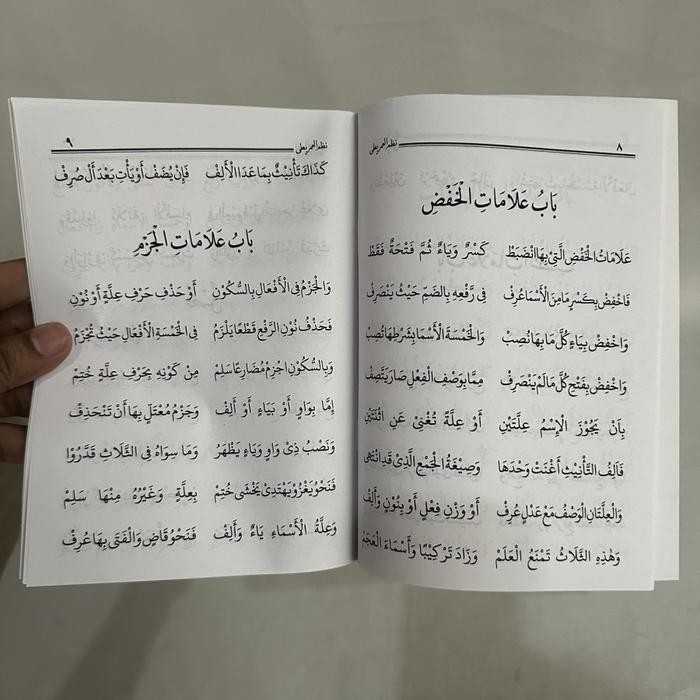 ٨ نظم العمريطى
بَابُ عَلَامَاتِ الْخَفْضِ
عَلَامَاتُ الْخَفْضِ الَّتِيْ بِهَا انْضَبَطْ كَسْرٌ وَيَاءٌ ثُمَّ فَتْحَةٌ فَقَطْ
فَاخْفِضْ بِكَسْرٍ مَا مِنَ الْأَسْمَا عُرِفْ فِى رَفْعِهِ بِالضَّمِّ حَيْثُ يَنْصَرِفْ
وَاخْفِضْ بِيَاءٍ كُلَّ مَا بِهَا نُصِبْ وَالْخَمْسَةَ الْأَسْمَا بِشَرْطِهَا تُصِبْ
وَاخْفِضْ بِفَتْحٍ كُلَّ مَا لَمْ يَنْصَرِفْ مِمَّا بِوَصْفِ الْفِعْلِ صَارَ يَتَّصِفْ
بِاَنْ يَحُوْزَ الْاِسْمُ عِلَّتَيْنِ أَوْ عِلَّةً تُغْنِيْ عَنِ اثْنَتَيْنِ
فَأَلِفُ التَّأْنِيْثِ أَغْنَتْ وَحْدَهَا وَصِيْغَةُ الْجَمْعِ الَّذِيْ قَدِ انْتَهَى
وَالْعِلَّتَانِ الْوَصْفُ مَعْ عَدْلٍ عُرِفْ أَوْ وَزْنِ فِعْلٍ أَوْ بِنُوْنٍ وَأَلِفْ
وَهٰذِهِ الثَّلَاثُ تَمْنَعُ الْعَلَمْ وَزَادَ تَرْكِيْبًا وَأَسْمَاءَ الْعَجَمْ
نظم العمريطى ٩
كَذَاكَ تَأْنِيْثٌ بِمَا عَدَا الْأَلِفْ فَإِنْ يُضَفْ أَوْ يَأْتِ بَعْدَ أَلْ صُرِفْ
بَابُ عَلَامَاتِ الْجَزْمِ
وَالْجَزْمُ فِى الْأَفْعَالِ بِالسُّكُوْنِ أَوْ حَذْفِ حَرْفِ عِلَّةٍ أَوْ نُوْنِ
فَحَذْفُ نُوْنِ الرَّفْعِ قَطْعًا يَلْزَمُ فِى الْخَمْسَةِ الْأَفْعَالِ حَيْثُ تُجْزَمُ
وَبِالسُّكُوْنِ اجْزِمْ مُضَارِعًا سَلِمْ مِنْ كَوْنِهِ بِحَرْفِ عِلَّةٍ خُتِمْ
إِمَّا بِوَاوٍ أَوْ بِيَاءٍ أَوْ أَلِفْ وَجَزْمُ مُعْتَلٍّ بِهَا أَنْ تَنْحَذِفْ
وَنَصْبُ ذِيْ وَاوٍ وَيَاءٍ يَظْهَرُ وَمَا سِوَاهُ فِى الثَّلَاثِ قَدَّرُوْا
فَنَحْوُ يَغْزُوْ يَهْتَدِيْ يَخْشَى خُتِمْ بِعِلَّةٍ وَغَيْرُهُ مِنْهَا سَلِمْ
وَعِلَّةُ الْأَسْمَاءِ يَاءٌ وَأَلِفْ فَنَحْوُ قَاضٍ وَالْفَتَى بِهَا عُرِفْ